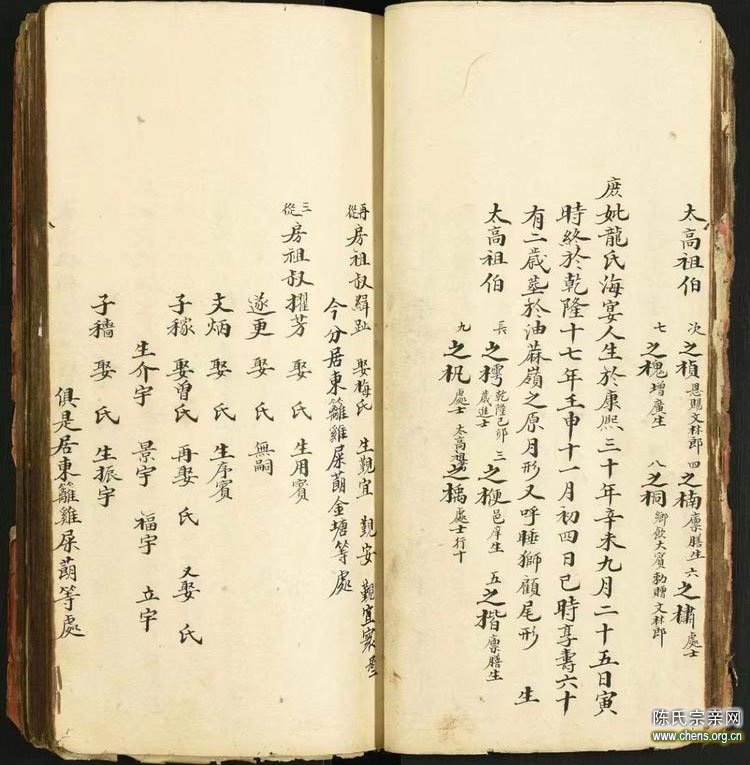 太高祖伯 次之楨恩賜文林郎 四之楠廩膳生 六之橚處士
七之槐增廣生 八之桐鄉飲大賓勅贈文林郎
庶妣龍氏海宴人生於康熙三十年辛未九月二十五日寅
時終於乾隆十七年壬申十一月初四日巳時享壽六十
有二歲塟於油蔴嶺之原月形又呼睡獅顧尾形 生
太高祖伯 長之樗乾隆己卯歲進士 三之梗邑庠生 五之揩廪膳生
九之杋處士 太高祖之㮧處士行十
再從房祖叔緝趾 娶梅氏 生觀宜 觀安 觀宜
今分居東籬雞屎蓢金塘等處
三從房祖叔擢芳 娶 氏 生用賓
遂更 娶 氏 無嗣
文炳 娶 氏 生序賓
子稼 娶曾氏 再娶 氏 又娶 氏
生介宇 景宇 福宇 立宇
子穡 娶 氏 生振宇
俱是居東籬雞屎蓢等處
陈氏宗亲网
www.chens.org.cn